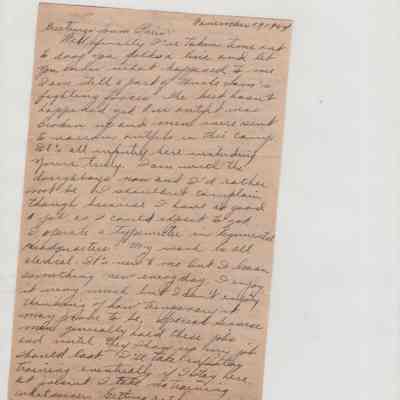 November 19, 1944
Greetings from Paris:
Well finally I've taken time out
to drop you folks a line and let
you know what happened to me
I am still a part of Uncle Sam's
fighting forces the best hasn't
happened yet Our outfit was
broken up and men were sent
to various outfits in this camp
It's all infantry here including
yours truly. I am with the
doughboys now and I'd rather
not be. I shouldn't complain
though because I have as good
a job as I could expect to get
I operate a typewriter in Regimental
Headquarters. My work is all
clerical. It's new to me but I learn
something new everyday. I enjoy
it very much but I don't enjoy
thinking of how temporary it
may prove to be. Special Service
men generally hold these jobs
and until they show up my job
should last I'll take infantry
training eventually if I stay here
at present I take no training
whatsoever. Getting